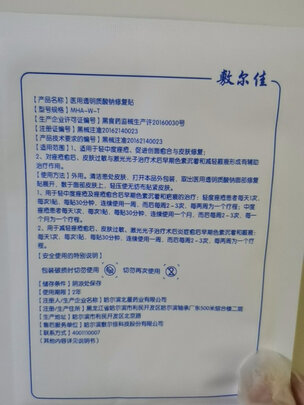 敷尔佳
【产品名称】医用透明质酸钠修复贴
【型号规格】MHA-W-T
【生产企业许可证编号】黑食药监械生产许20160030号
【注册证编号】黑械注准20162140023
【产品技术要求的编号】黑械注准20162140023
【适用范围】1、适用于轻中度痤疮、促进创面愈合与皮肤修复;
2、对痤疮愈后、皮肤过敏与激光光子治疗术后早期色素沉着和减轻瘢痕形成有辅助
治疗作用。
【使用方法】外用。清洁患处皮肤，打开本品外包装，取出医用透明质酸钠面部修复
贴展开，敷于面部皮肤上，轻压使无纺布贴紧皮肤。
1、用于轻中度痤疮及痤疮愈后早期色素沉着和疤痕的治疗：轻度痤疮患者每天1次，
每次1贴，每贴30分钟，连续使用一周，而后每周2-3次，每两周为一个疗程。中度
痤疮患者每天1次，每次1贴，每贴30分钟，连续使用一个月，而后每周2-3次，每一个
月为一个疗程。
2、用于减轻痤疮愈后、皮肤过敏、激光光子术后早期色素沉着和减轻瘢痕形成：
每天1次，每次1贴，每贴30分钟，连续使用一周，而后每周2-3次，每两周为一个疗
程。
【安全使用的特别说明】
包装破损时切勿使用
切勿再次使用
【储存条件】阴凉处保存
【使用期限】2年
【注册人/生产企业名称】哈尔滨北星药业有限公司
【注册/生产住所】黑龙江省哈尔滨市利民开发区哈尔滨轴承厂东500米综合楼二层
【生产地址】哈尔滨市利民开发区北京路
【售后服务单位】哈尔滨敷尔佳科技股份有限公司
【联系方式】4001110007
【其他内容详见说明书】